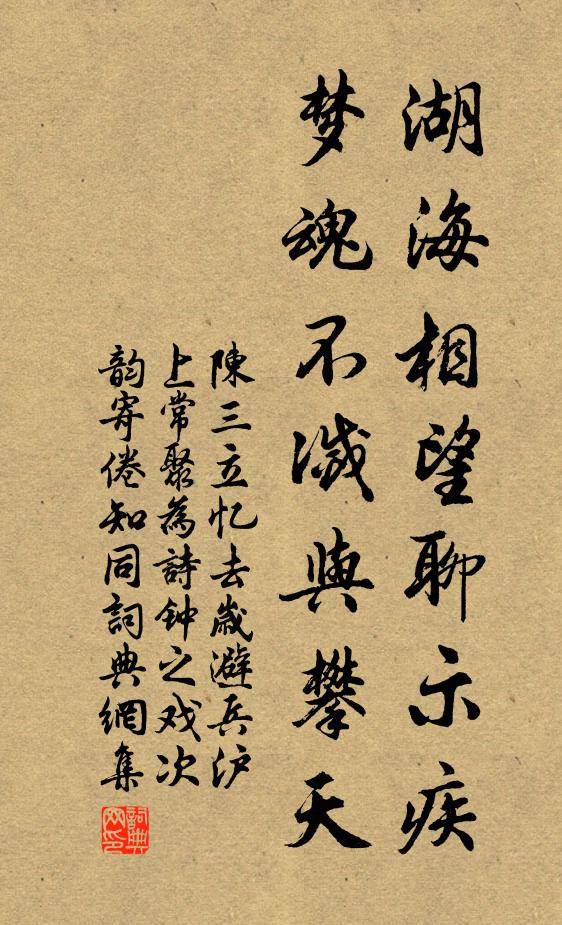 湖海相望聊示疾
梦魂不滅與攀天
陳三立忆去歲避兵沪
上常聚為詩钟之戏次
韵寄倦知同詞典網集
詞典网印